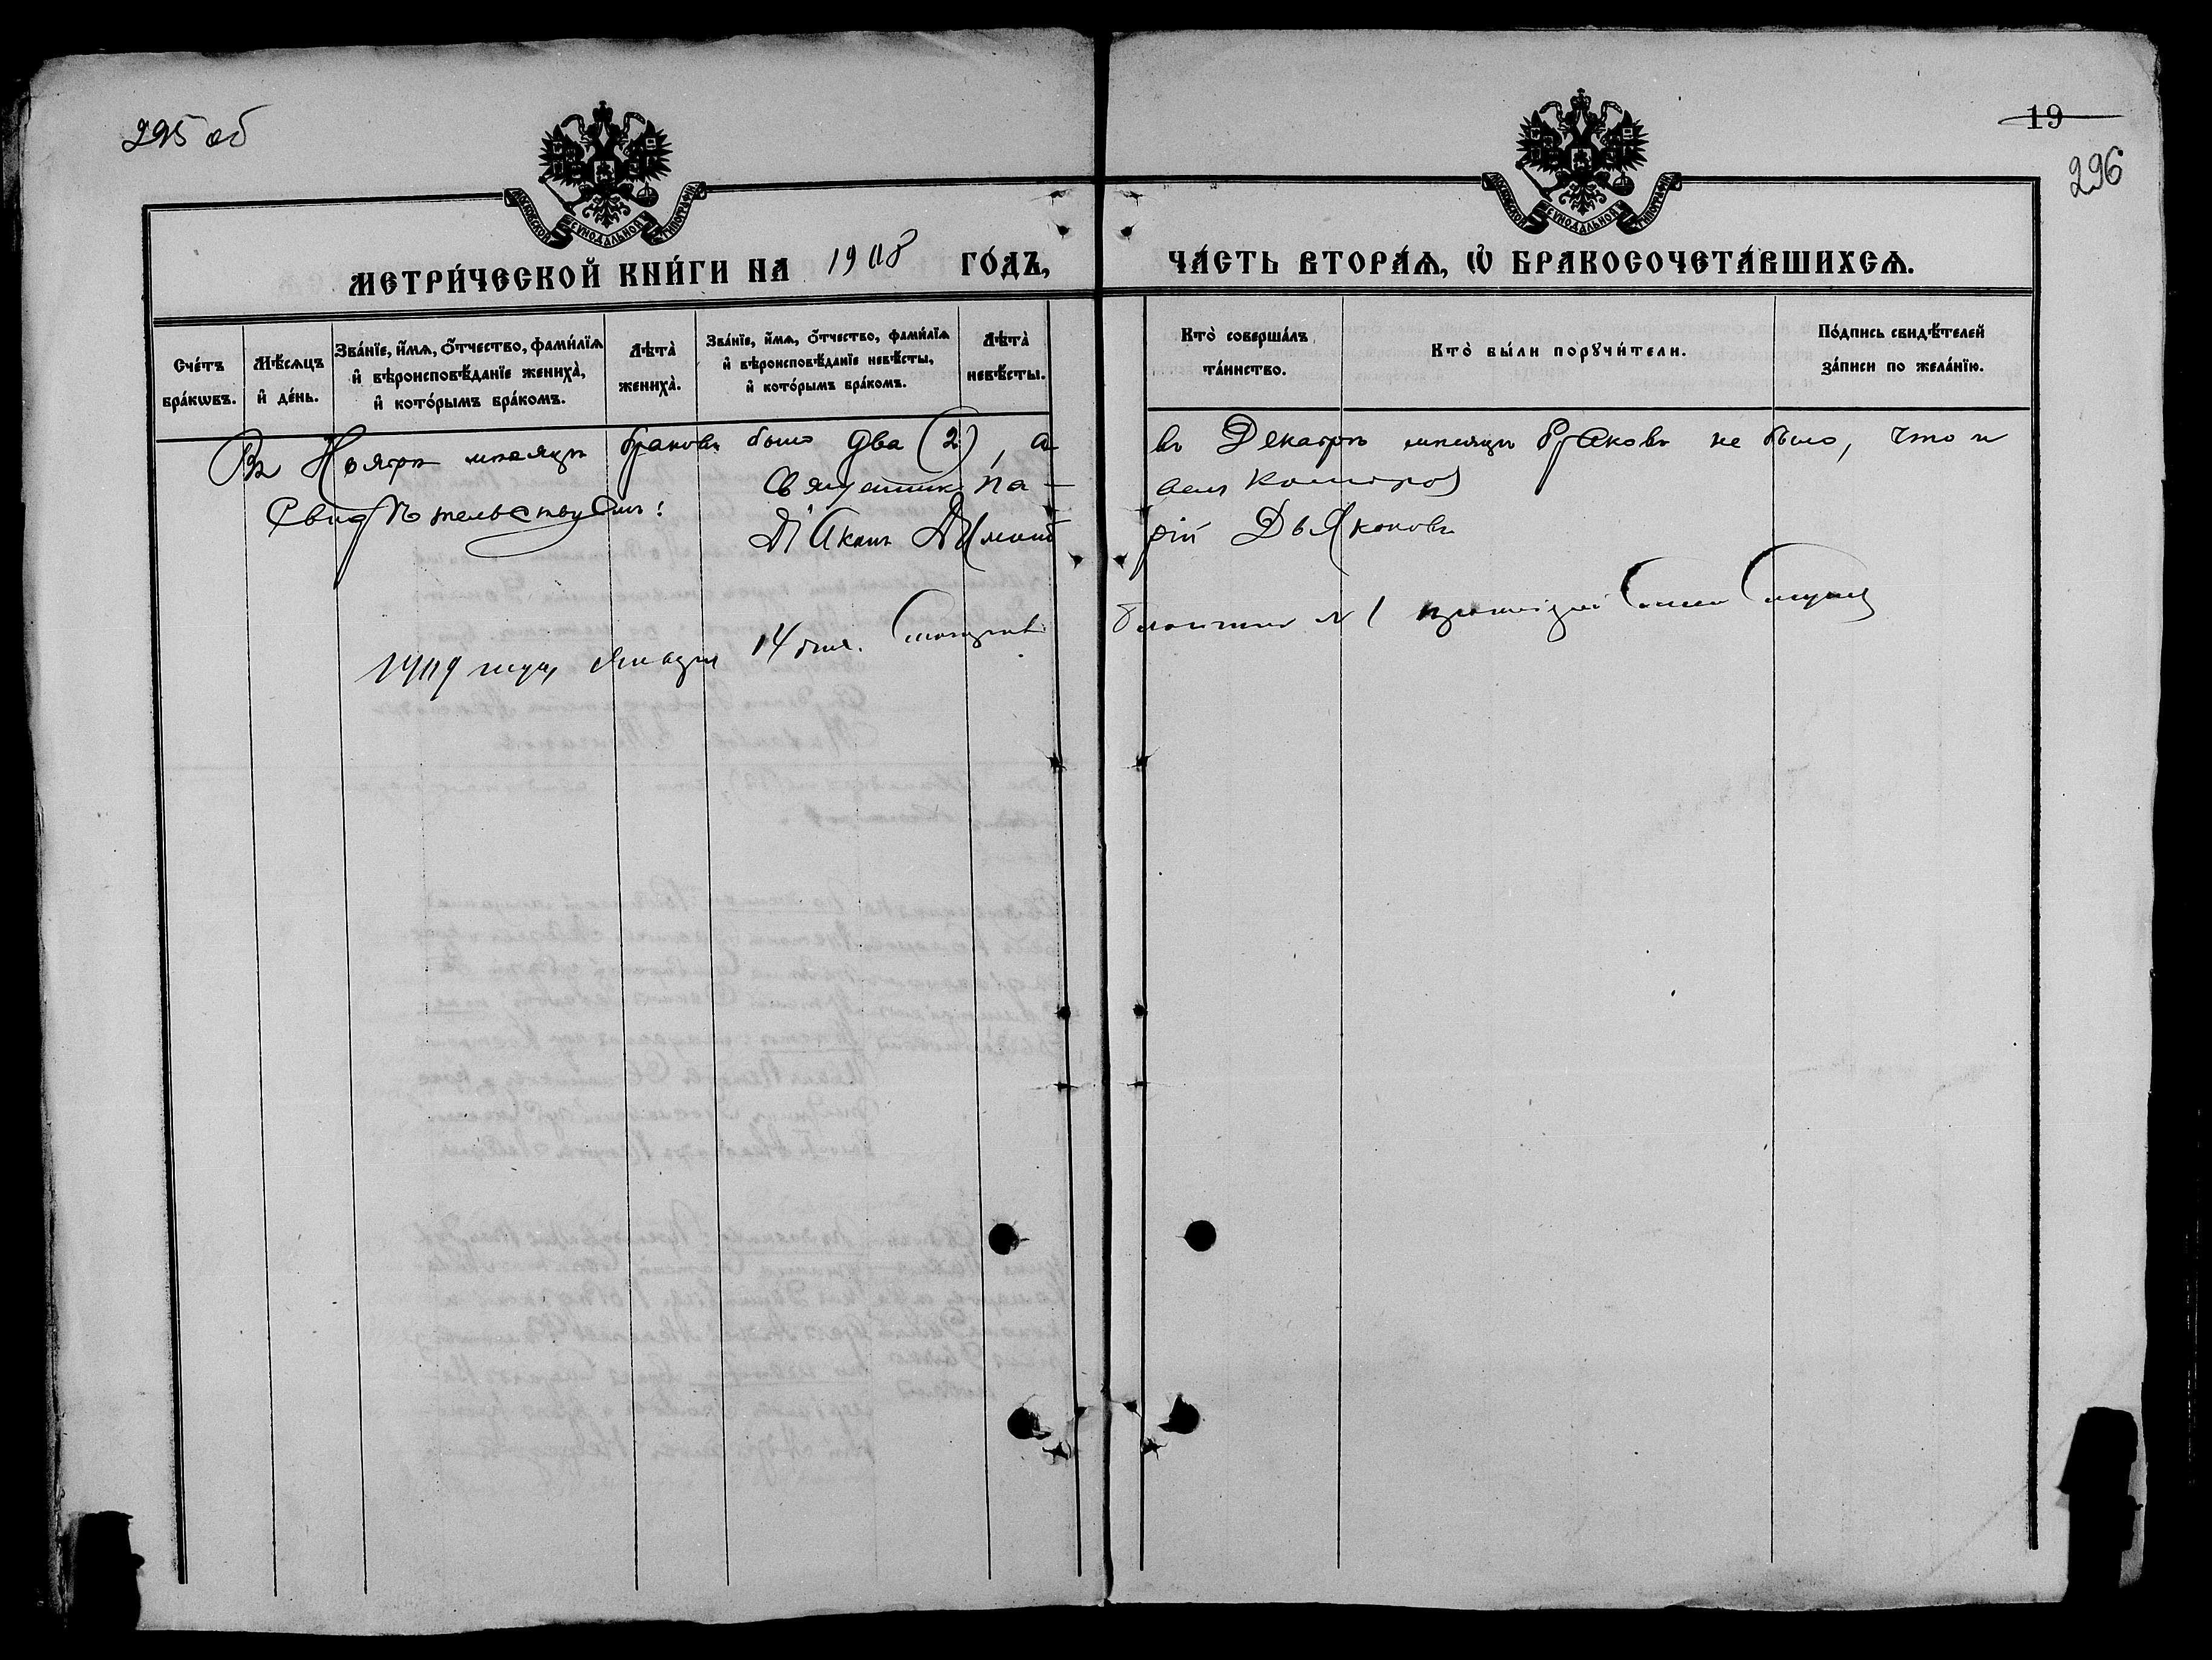 295 об
19
296
МОСКОВСКОЙ СѴНОДАЛЬНОЙ ТИПОГРАФІИ
МОСКОВСКОЙ СѴНОДАЛЬНОЙ ТИПОГРАФІИ
МЕТРИ́ЧЕСКОЙ КНИ́ГИ НА 1908 ГО́ДЪ, ЧА́СТЬ ВТОРА́Ѧ, Ѡ҆ БРАКОСОЧЕТА́ВШИХСѦ.
Сче́тъ бра́кѡвъ.
Мѣ́сѧцъ и҆ де́нь.
Зва́нїе, и҆́мѧ, ѻ҆́тчество, фами́лїѧ и҆ вѣроисповѣ́данїе жениха̀, и҆ кото́рымъ бра́комъ.
Лѣта̀ жениха̀.
Зва́нїе, и҆́мѧ, ѻ҆́тчество, фами́лїѧ и҆ вѣроисповѣ́данїе невѣ́сты, и҆ кото́рымъ бра́комъ.
Лѣта̀ невѣ́сты.
Кто̀ соверша́лъ та́инство.
Кто̀ бы́ли порꙋчи́тели.
По́дпись свидѣ́телей за́писи по жела́нїю.
Въ Ноябрѣ мѣсяцѣ браковъ было два (2), а въ Декабрѣ мѣсяцѣ браковъ не было, что и
свидѣтельствуемъ: Священникъ Па-велъ Комаровъ
Діаконъ Димитрій Дьяконовъ
1909 года Января 14 дня. № 1